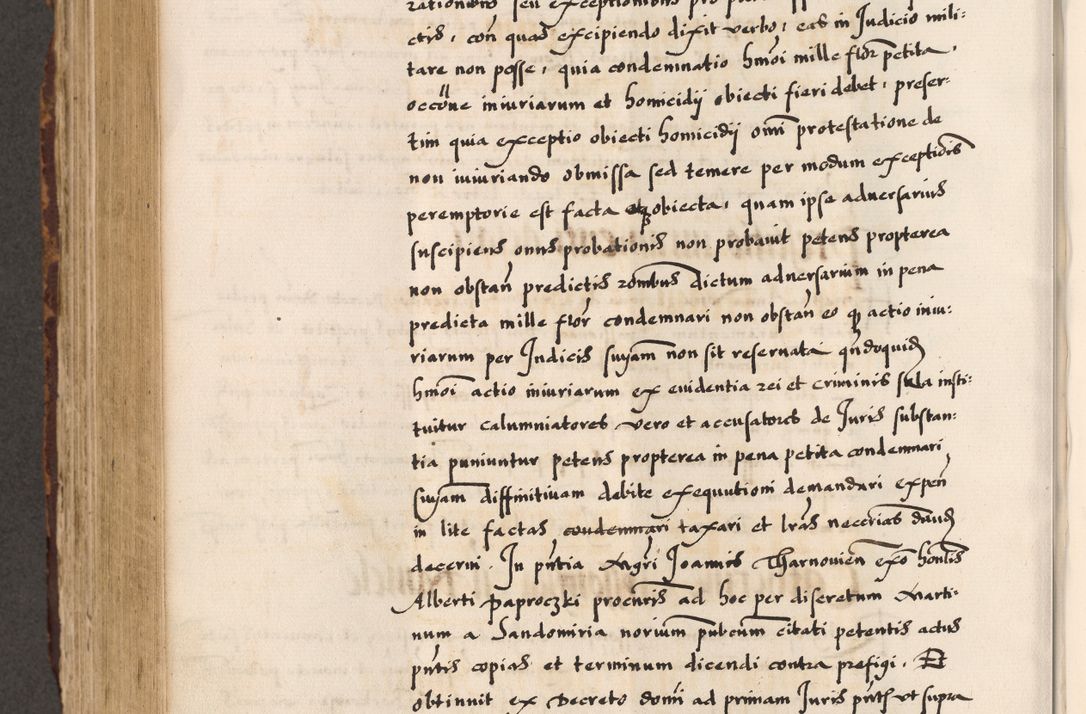 rationibus seu exceptionibus
ctis, con quas excipiendo dixit verbo, eas in Judicio mili:
tare non posse, quia condemnatio hmoi mille flor petita,
occone iniuriarum et homicidij obiecti fieri debet, preser:
tim quia exceptio obiecti homicidij omi protestatione de
non iniuriando obmissa sed temere per modum exceptionis
peremptorie est facta et obiecta, quam ipse adversarius
suscipiens onus probationis non probavit petens propterea
non obstan predictis rombus dictum adversarium in pena
predicta mille flor condemnari non obstan eo q actio iniu:
riarum per Judicis suyam non sit reservata qndoquid
hmoi actio iniuriarum ex evidentia rei et criminis sola insti:
tuitur calumniatores vero et accusatores de Juris substan:
tia puniuntur petens propterea in pena petita condemnari,
suyam diffinitivam debite exequutioni demandari expen
in lite factas condemnari taxari et lras neccrias dand
decerni. In pntia Mgri Joannis Tharnovien exo honlis
Alberti Paproczki procuris ad hoc per discretum Marti:
num a Sandomiria norium pubcum citati petentis actus
pntis copias et terminum dicendi contra prefigi. Et
obtinuit ex Decreto domi ad primam Juris pnts ut supra